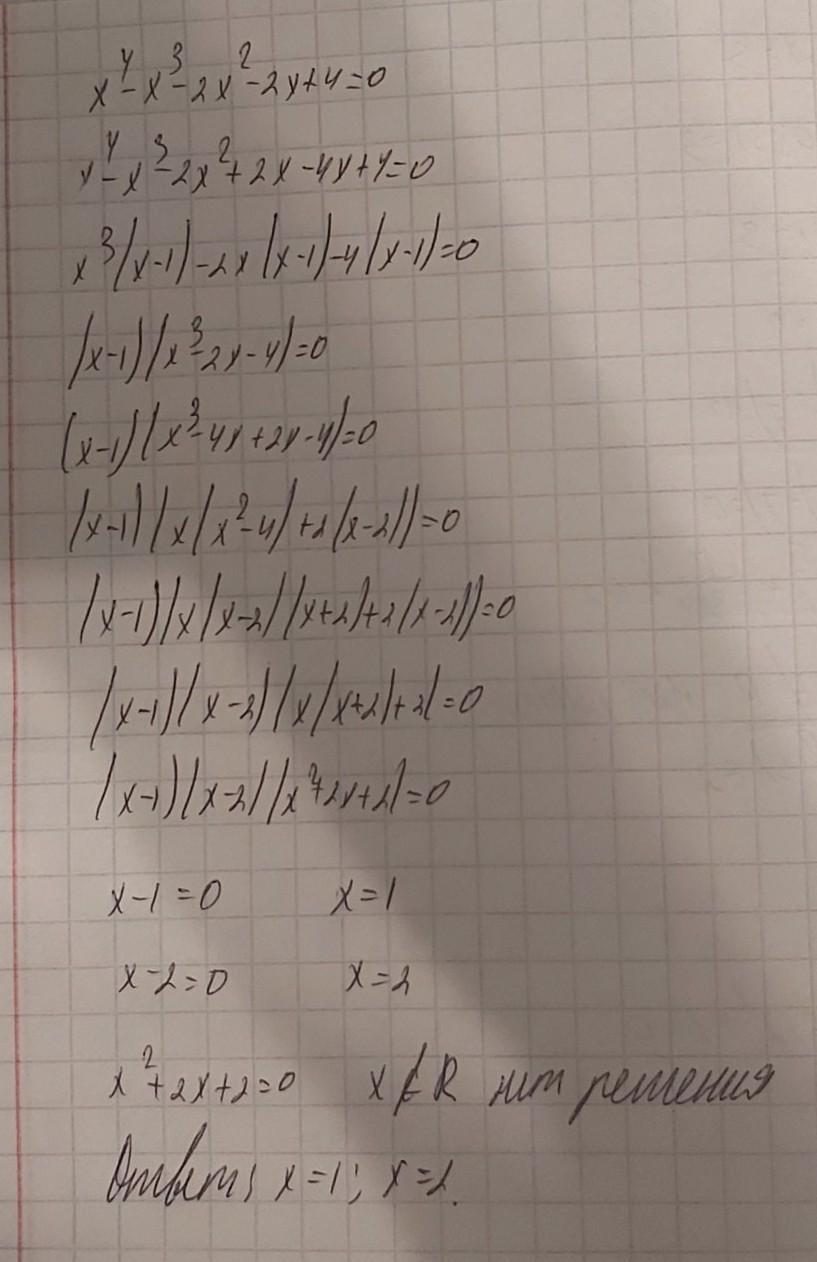 x⁴-x³-2x²-2x+4=0
x⁴-x³-2x²+2x-4x+4=0
x³(x-1)-2x(x-1)-4(x-1)=0
(x-1)(x³-2x-4)=0
(x-1)(x³-4x+2x-4)=0
(x-1)(x(x²-4)+2(x-2))=0
(x-1)(x(x-2)(x+2)+2(x-2))=0
(x-1)(x-2)(x(x+2)+2)=0
(x-1)(x-2)(x²+2x+2)=0
x-1=0 x=1
x-2=0 x=2
x²+2x+2=0 x∉R нет решения
Ответ: x=1; x=2.